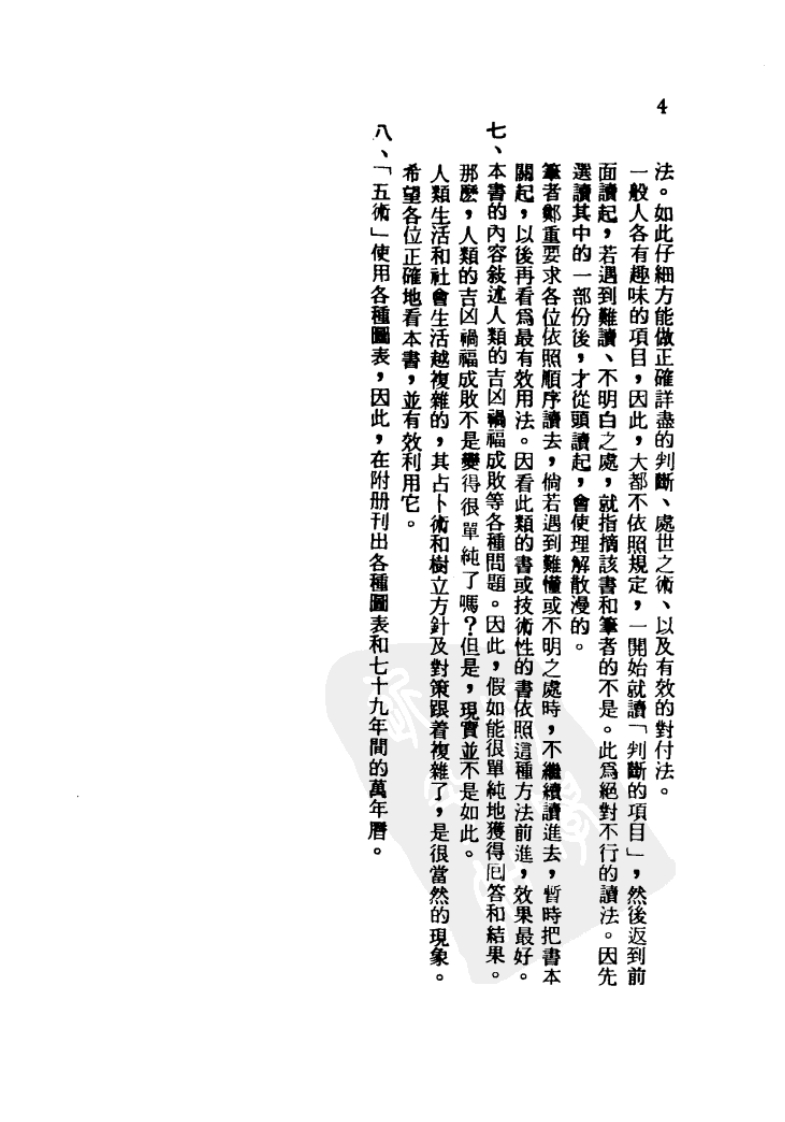 4
法。如此仔細方能做正確詳盡的判斷、處世之術、以及有效的對付法。
一般人各有趣味的項目，因此，大都不依照規定，一開始就讀「判斷的項目」，然後返到前
面讀起，若遇到難讀、不明白之處，就指摘該書和筆者的不是。此爲絕對不行的讀法。因先
選讀其中的一部份後，才從頭讀起，會使理解散漫的。
筆者鄭重要求各位依照順序讀去，倘若遇到難懂或不明之處時，不繼續讀進去，暫時把書本
關起，以後再看爲最有效用法。因看此類的書或技術性的書依照這種方法前進，效果最好。
七、本書的內容敍述人類的吉凶禍福成敗等各種問題。因此，假如能很單純地獲得回答和結果。
那麽，人類的吉凶禍福成敗不是變得很單純了嗎？但是，現實並不是如此。
人類生活和社會生活越複雜的，其占卜術和樹立方針及對策跟着複雜了，是很當然的現象。
希望各位正確地看本書，並有效利用它。
八、「五術」使用各種圖表，因此，在附册刊出各種圖表和七十九年間的萬年曆。